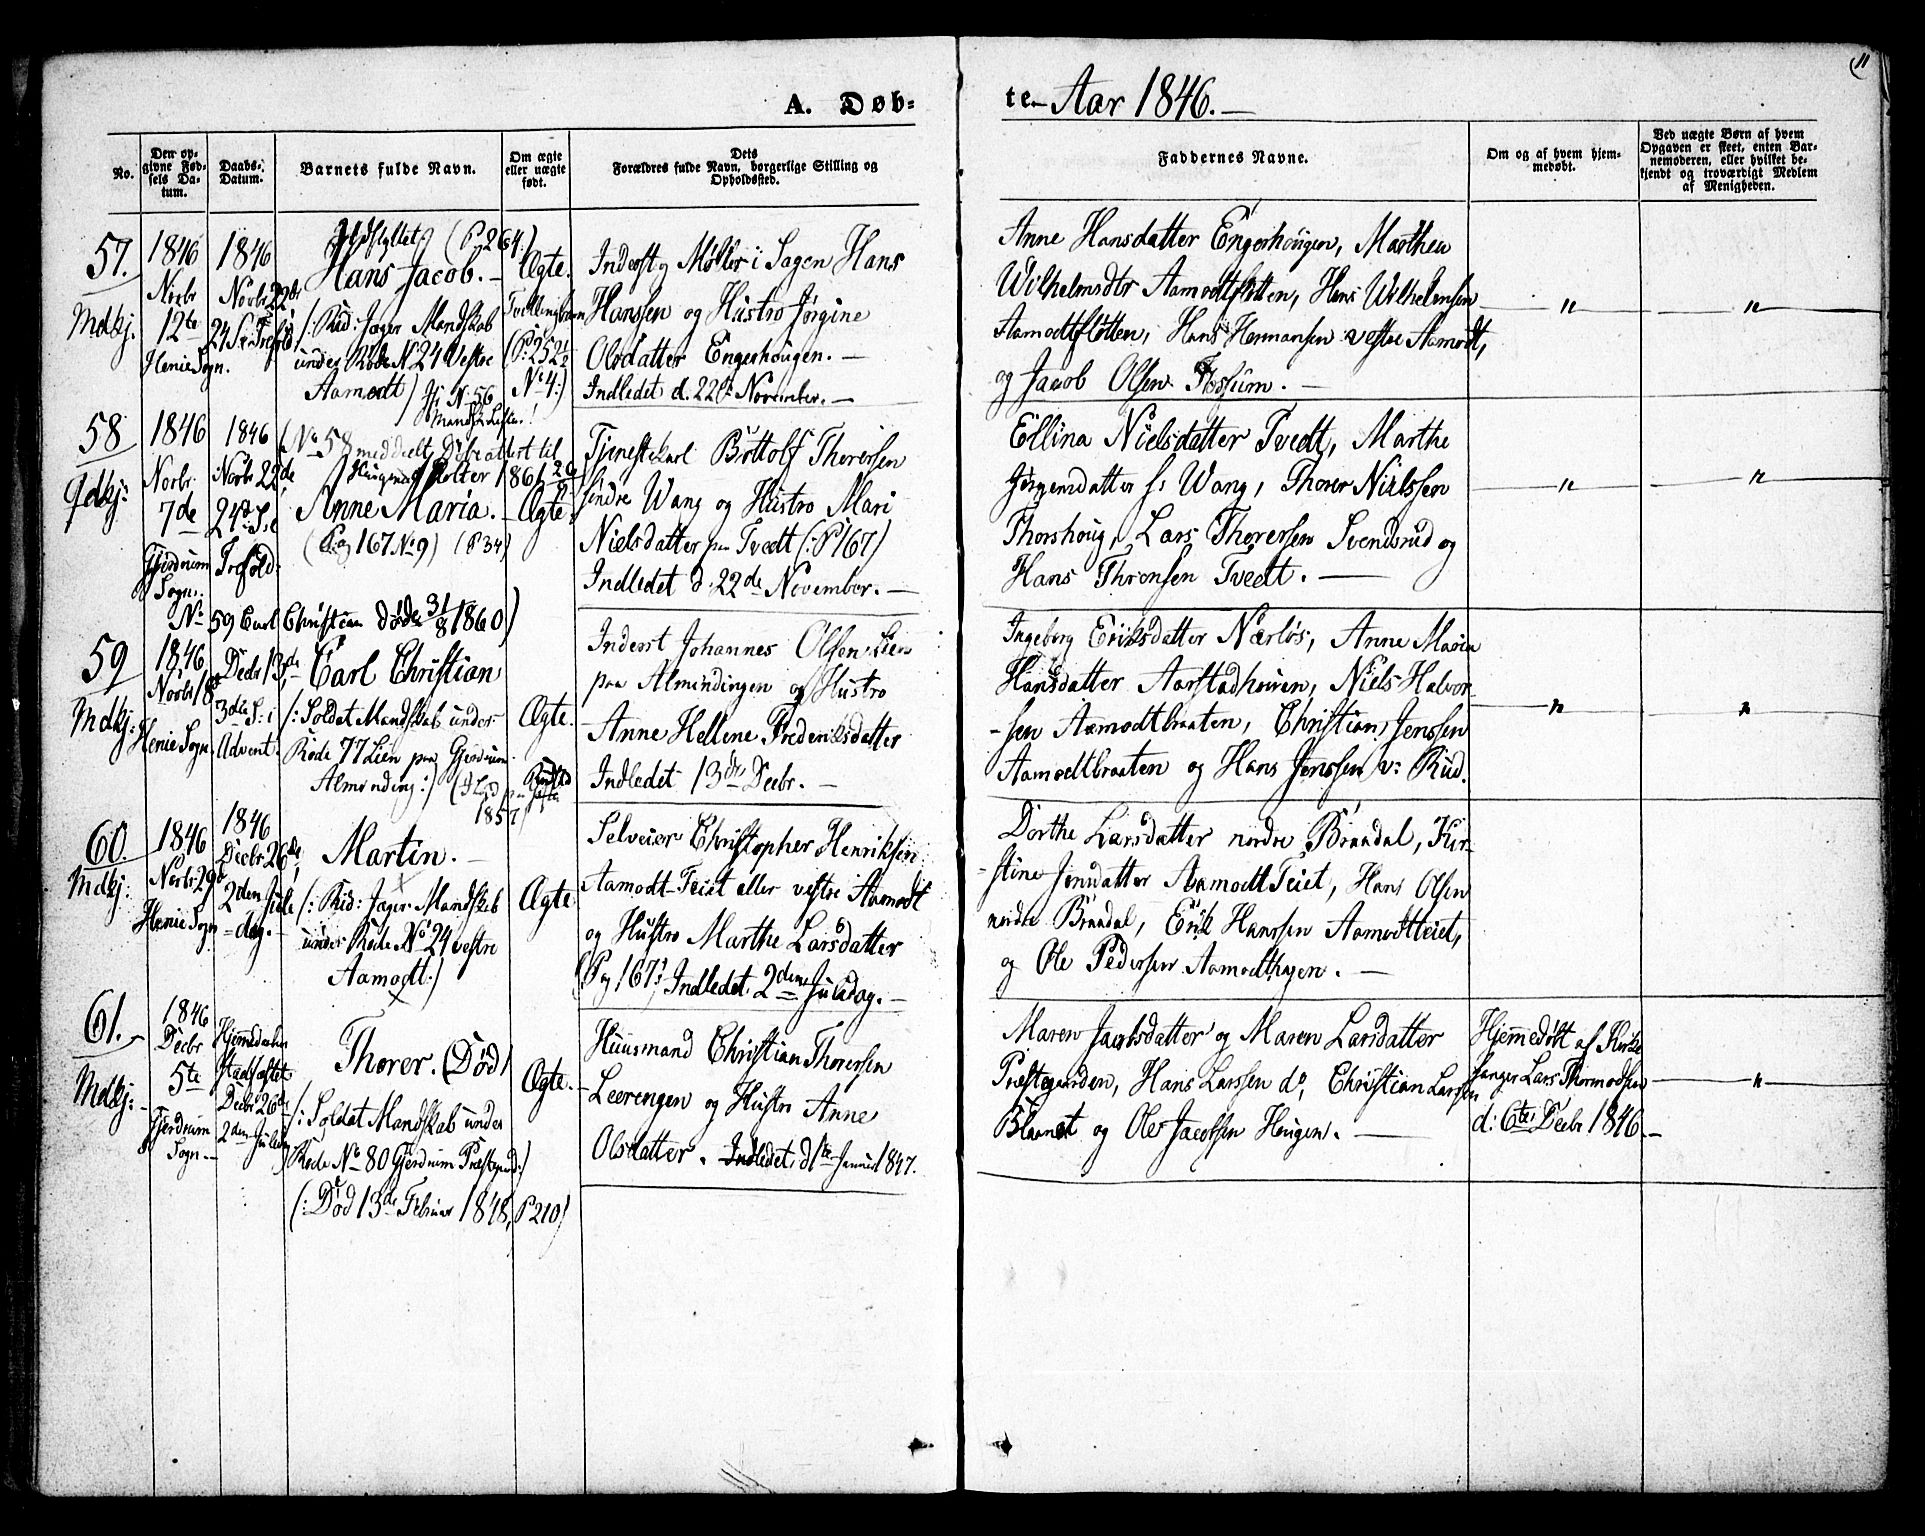 11
A. Døb-
te Aar 1846.
No.
Den op-
givne Fød-
sels Da-
tum.
Daabs-
Datum.
Barnets fulde Navn.
Om ægte
eller uægte
født.
Dets
Forældres fulde Navn, borgerlige Stilling og
Opholdssted.
Faddernes Navne.
Om og af hvem hjem-
medøbt.
Ved uægte Børn af hvem
Opgaven er skeet, enten Bar-
nemoderen, eller hvilket be-
kjendt og troværdigt Medlem
af Menigheden.
57.
Mdkj.
1846
Novbr
12te
Henie Sogn.
1846
Novbr 22de
24 S. e. Trefold
(P. 264.)
Hans Jacob.
/: Rid: Jæger Mandskab
under Rode No 24 Vestre
Aamodt)
No 56
Ægte.
Tvillingbarn
(P: 252
No 4:)
Inderst og Møller i Sagen Hans
Hanssen og Hustro Jørgine
Olsdatter Engerhougen.
Indledet d. 22de November.
Anne Hansdatter Engerhougen, Marthea
Wilhelmsdtr Aamodtflotten, Hans Wilhelmsen
Aamodtflotten, Hans Hermansen vestre Aamodt,
og Jacob Olsen Fossum.
"
"
58
Qdkj:
1846
Novbr.
7de
Gjerdrum
Sogn.
1846
Novbr 22de
24de S. e.
Trefold:
(No 58 meddelt Døbeattest til
1861
Anne Maria.
(Pag 167 No 9) (P 34)
Ægte.
Tjenestekarl Bottolf Thoresen
søndre Wang og Hustro Mari
Nielsdatter paa Tvedt (: P 167)
Indledet d. 22de November.
Ellina Nielsdatter Tvedt, Marthe
Jørgensdatter s: Wang, Thorer Nielssen
Thorshoug, Lars Thoresen Svendsrud og
Hans Thronsen Tvedt.
"
"
No 59 Carl Christian døde 31/8 1860)
59
Mdkj:
1846
Novbr 18de
Henie Sogn.
Decbr 13de
3die S: i
Advent.
Carl Christian
/: Soldat Mandskab under
Rode 77 Lien paa Gjerdrum
Almending:)
1857)
Ægte.
Inderst Johannes Olsen Lien
paa Almindingen og Hustro
Anne Hellene Frederiksdatter
Indledet 13de Decbr.
Ingeborg Eriksdatter Nærløs, Anne Maria
Hansdatter Aarstadhouen, Niels Halvor-
-sen Aamodtbraaten, Christian Jenssen
Aamodtbraaten og Hans Jenssen v: Rud.
"
"
60.
Mdkj:
1846
Novbr 29de
Henie Sogn
1846
Decbr 26de
2den Jule
-dag.
Martin.
/: Rid: Jæger Mandskab
under Rode No 24 vestre
Aamodt:)
Ægte
Selveier Christopher Henriksen
Aamodt-Teiet eller vestre Aamodt
og Hustro Marthe Larsdatter
(Pag 167) Indledet 2den Juledag.
Dorthe Larsdatter nordre Braadal, Kir-
-stine Jensdatter Aamodt Teiet, Hans Olsen
nordre Braadal, Erik Hanssen Aamodtteiet,
og Ole Pedersen Aamodthagen.
61.
Mdkj:
1846
Decbr
5te
Gjerdrum
Sogn.
Hjemmedaaben
Stadfæstet
Decbr 26de
2den Juledag
Thorer. (Død)
/: Soldat Mandskab under
Rode No 80 Gjerdrum Præstegaard:)
(: Død 13de Februar 1848, P 210)
Ægte.
Huusmand Christian Thoresen
Leerengen og Hustro Anne
Olsdatter. Indledet d 1te Januar 1847.
Maren Jacobsdatter og Maren Larsdatter
Præstegaarden, Hans Larssen do, Christian Larssen
og Ole Jacobsen Hougen.
Hjemmedøbt af Kirke
sanger Lars Thormodsen
d: 6te Decbr 1846.
"